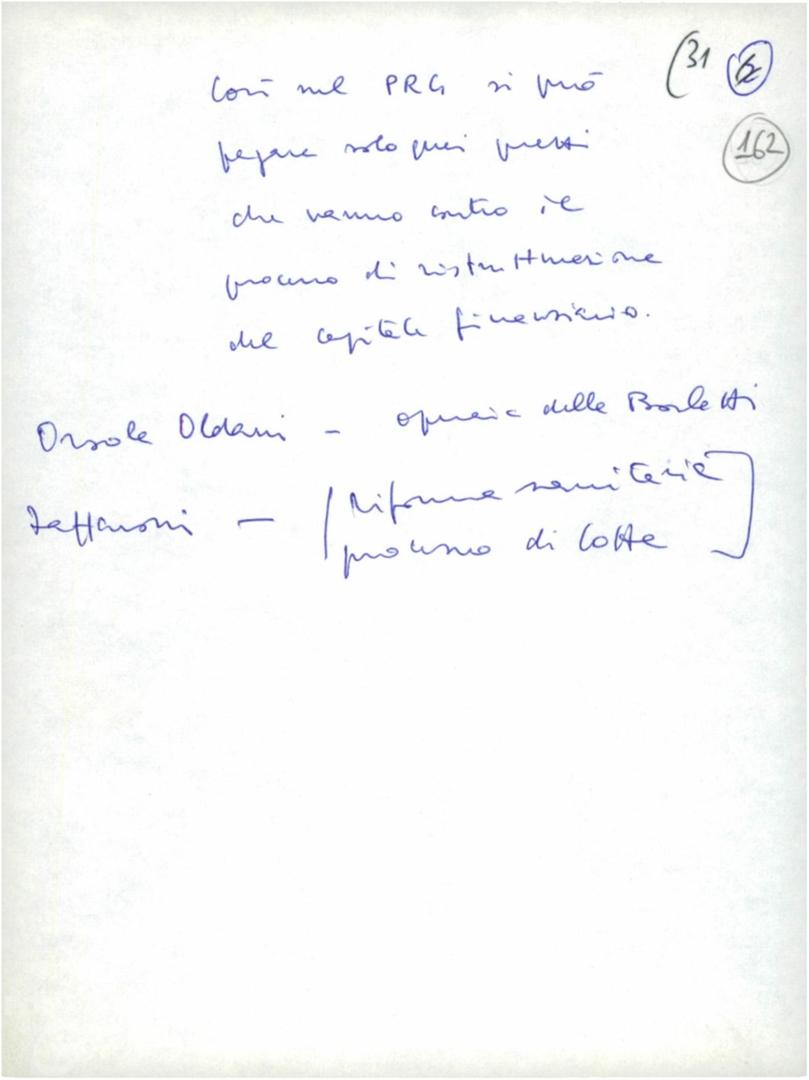 (31
162
Così sul PRG si può
pagare solo quei prezzi
che vanno contro il
processo di ristrutturazione
del capitale finanziario.
Orsola Oldani - operaia della Borletti
Zaffaroni - Riforma sanitaria
processo di lotta